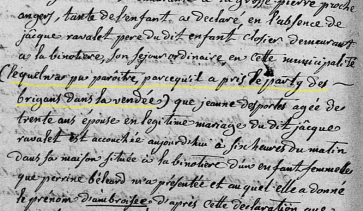 la grosse pierre proche
angers, tante de l'enfant, a declaré, en l'absence de
jacque ravalet pere du dit enfant closier demeurant
a la binotiere, son sejour ordinaire, en cette municipalité
(lequel n'ar pu paroitre, parcequ'il a pris le party des
brigans dans la vendeé) que jeanne desportes agée de
trente ans epouse en legitime mariage du dit jacque
ravalet est accouchée aujourd'hui a six heures du matin
dans sa maison située a la binotiere d'un enfant femelle
que perrine beleard m'a présentée et auquel elle a donné
le prénom d'ambroise d'après cette déclaration que